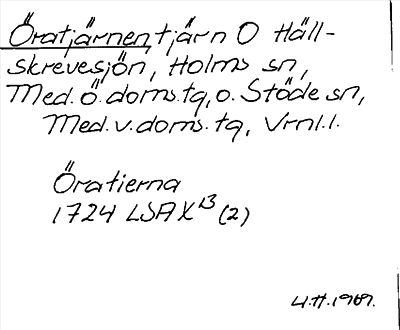 Öratjärnen, tjärn O Häll-
skrevesjön, Holms sn,
Med.ö.doms.tg, o. Stöde sn,
Med.v.doms.tg, Vrnl.l.
Öratierna
1724 LSA X¹³ (2)
U.H.1969.